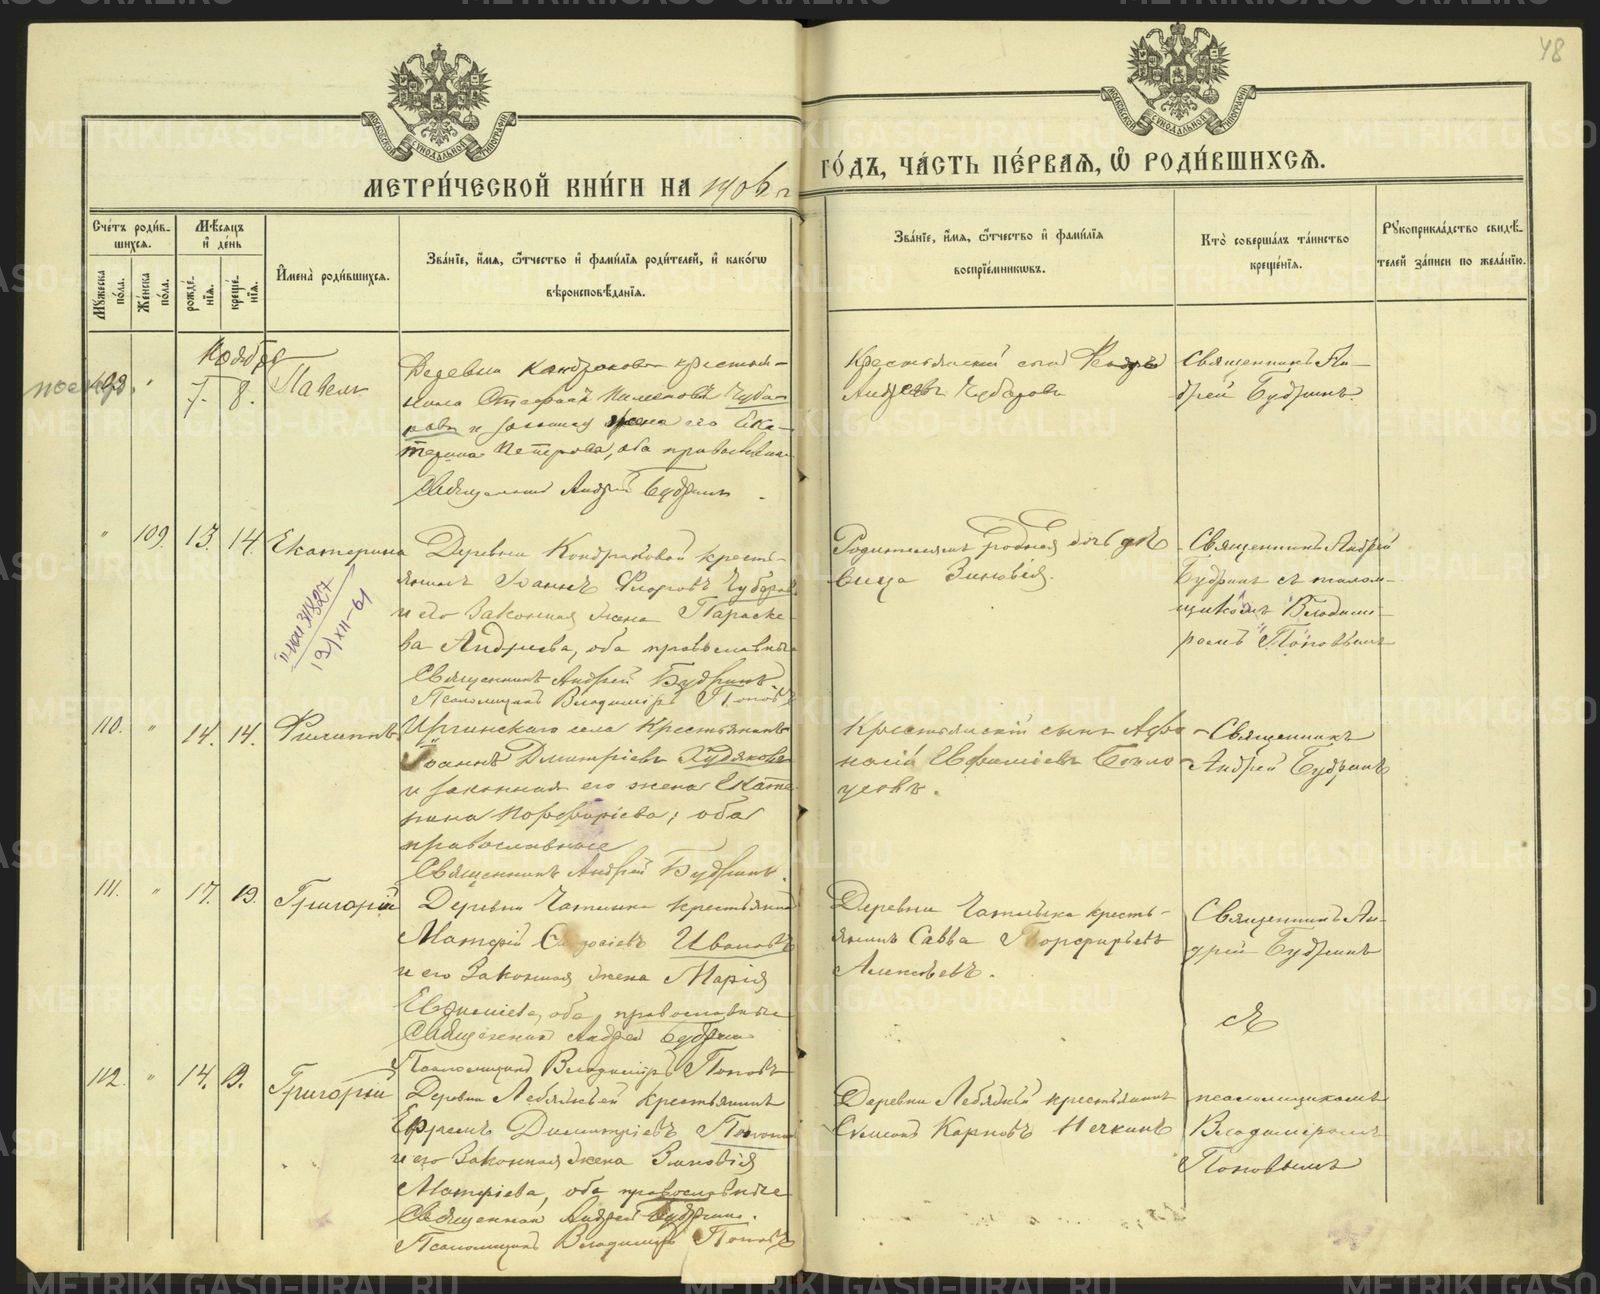 48
МОСКОВСКОЙ СѴНОДАЛЬНОЙ ТИПОГРАФІИ
МОСКОВСКОЙ СѴНОДАЛЬНОЙ ТИПОГРАФІИ
МЕТРИ́ЧЕСКОЙ КНИ́ГИ НА 1906 г
ГО́ДЪ, ЧА́СТЬ ПЕ́РВАѦ, Ѽ РОДИ́ВШИХСѦ.
Сче́тъ роди́в-
шихсѧ.
Мꙋжеска по́ла.
Же́нска по́ла.
Мѣ́сѧцъ
и҆ де́нь
рожде́нїѧ.
креще́нїѧ.
И҆мена̀ роди́вшихсѧ.
Зва́нїе, и҆́мѧ, ѻ҆́тчество и҆ фами́лїѧ роди́телей, и҆ како́гѡ
вѣроисповѣ́данїѧ.
Зва́нїе, и҆́мѧ, ѻ҆́тчество и҆ фами́лїѧ
воспрїе́мникѡвъ.
Кто̀ соверша́лъ та́инство
креще́нїѧ.
Рꙋкоприкла́дство свидѣ́-
телей за́писи по жела́нїю.
Ноябрь
108. " 7. 8. Павелъ
Деревни Кондраковой крестья-
нинъ
Чуба-
ровъ и законная жена его Ека-
терина Петрова, оба православные
Священникъ Андрей Будринъ
Крестьянскій сынъ Ѳеодръ
Андреевъ Чубаровъ
Священникъ Ан-
дрей Будринъ.
" 109. 13. 14. Екатерина
Деревни Кондраковой кресть-
янинъ Іоаннъ Ѳедоровъ Чубаровъ
и его законная жена Параске-
ва Андреева, оба православные
Священникъ Андрей Будринъ
Псаломщикъ Владиміръ Поповъ
19/XII-61
Родителямъ родная дочь дѣ
вица Зиновія.
Священникъ Андрей
Будринъ съ псалом-
щикомъ Владими-
ромъ Поповымъ
110. " 14. 14. Филиппъ
Иргинскаго села Крестьянинъ
Іоаннъ Димитріевъ Худяковъ
и законная его жена Екате
рина Порфиріева; оба
православные
Священникъ Андрей Будринъ.
Крестьянскій сынъ Афа
насій Евфиміевъ Бѣло
усовъ.
Священникъ
Андрей Будринъ
111. " 17. 19. Григорій
Деревни Чатлыка крестьянинъ
Матфій Ивановъ
и его законная жена Марія
Евфиміева, оба православные
Священникъ Андрей Будринъ
Псаломщикъ Владиміръ Поповъ
Деревни Чатлыка кресть-
янинъ Савва Порфирьевъ
Алексѣевъ.
Священникъ Ан-
дрей Будринъ
съ
112. " 14. 19. Григорій
Деревни Лебяжьей крестьянинъ
Ефремъ Димитріевъ
и его законная жена Зиновія
Матфіева, оба православные
Священникъ Андрей Будринъ.
Псаломщикъ Владиміръ Поповъ
Деревни Лебяжьей крестьянинъ
Симеонъ Карповъ Нечкинъ
псаломщикомъ
Владимиромъ
Поповымъ
METRIKI.GASO-URAL.RU